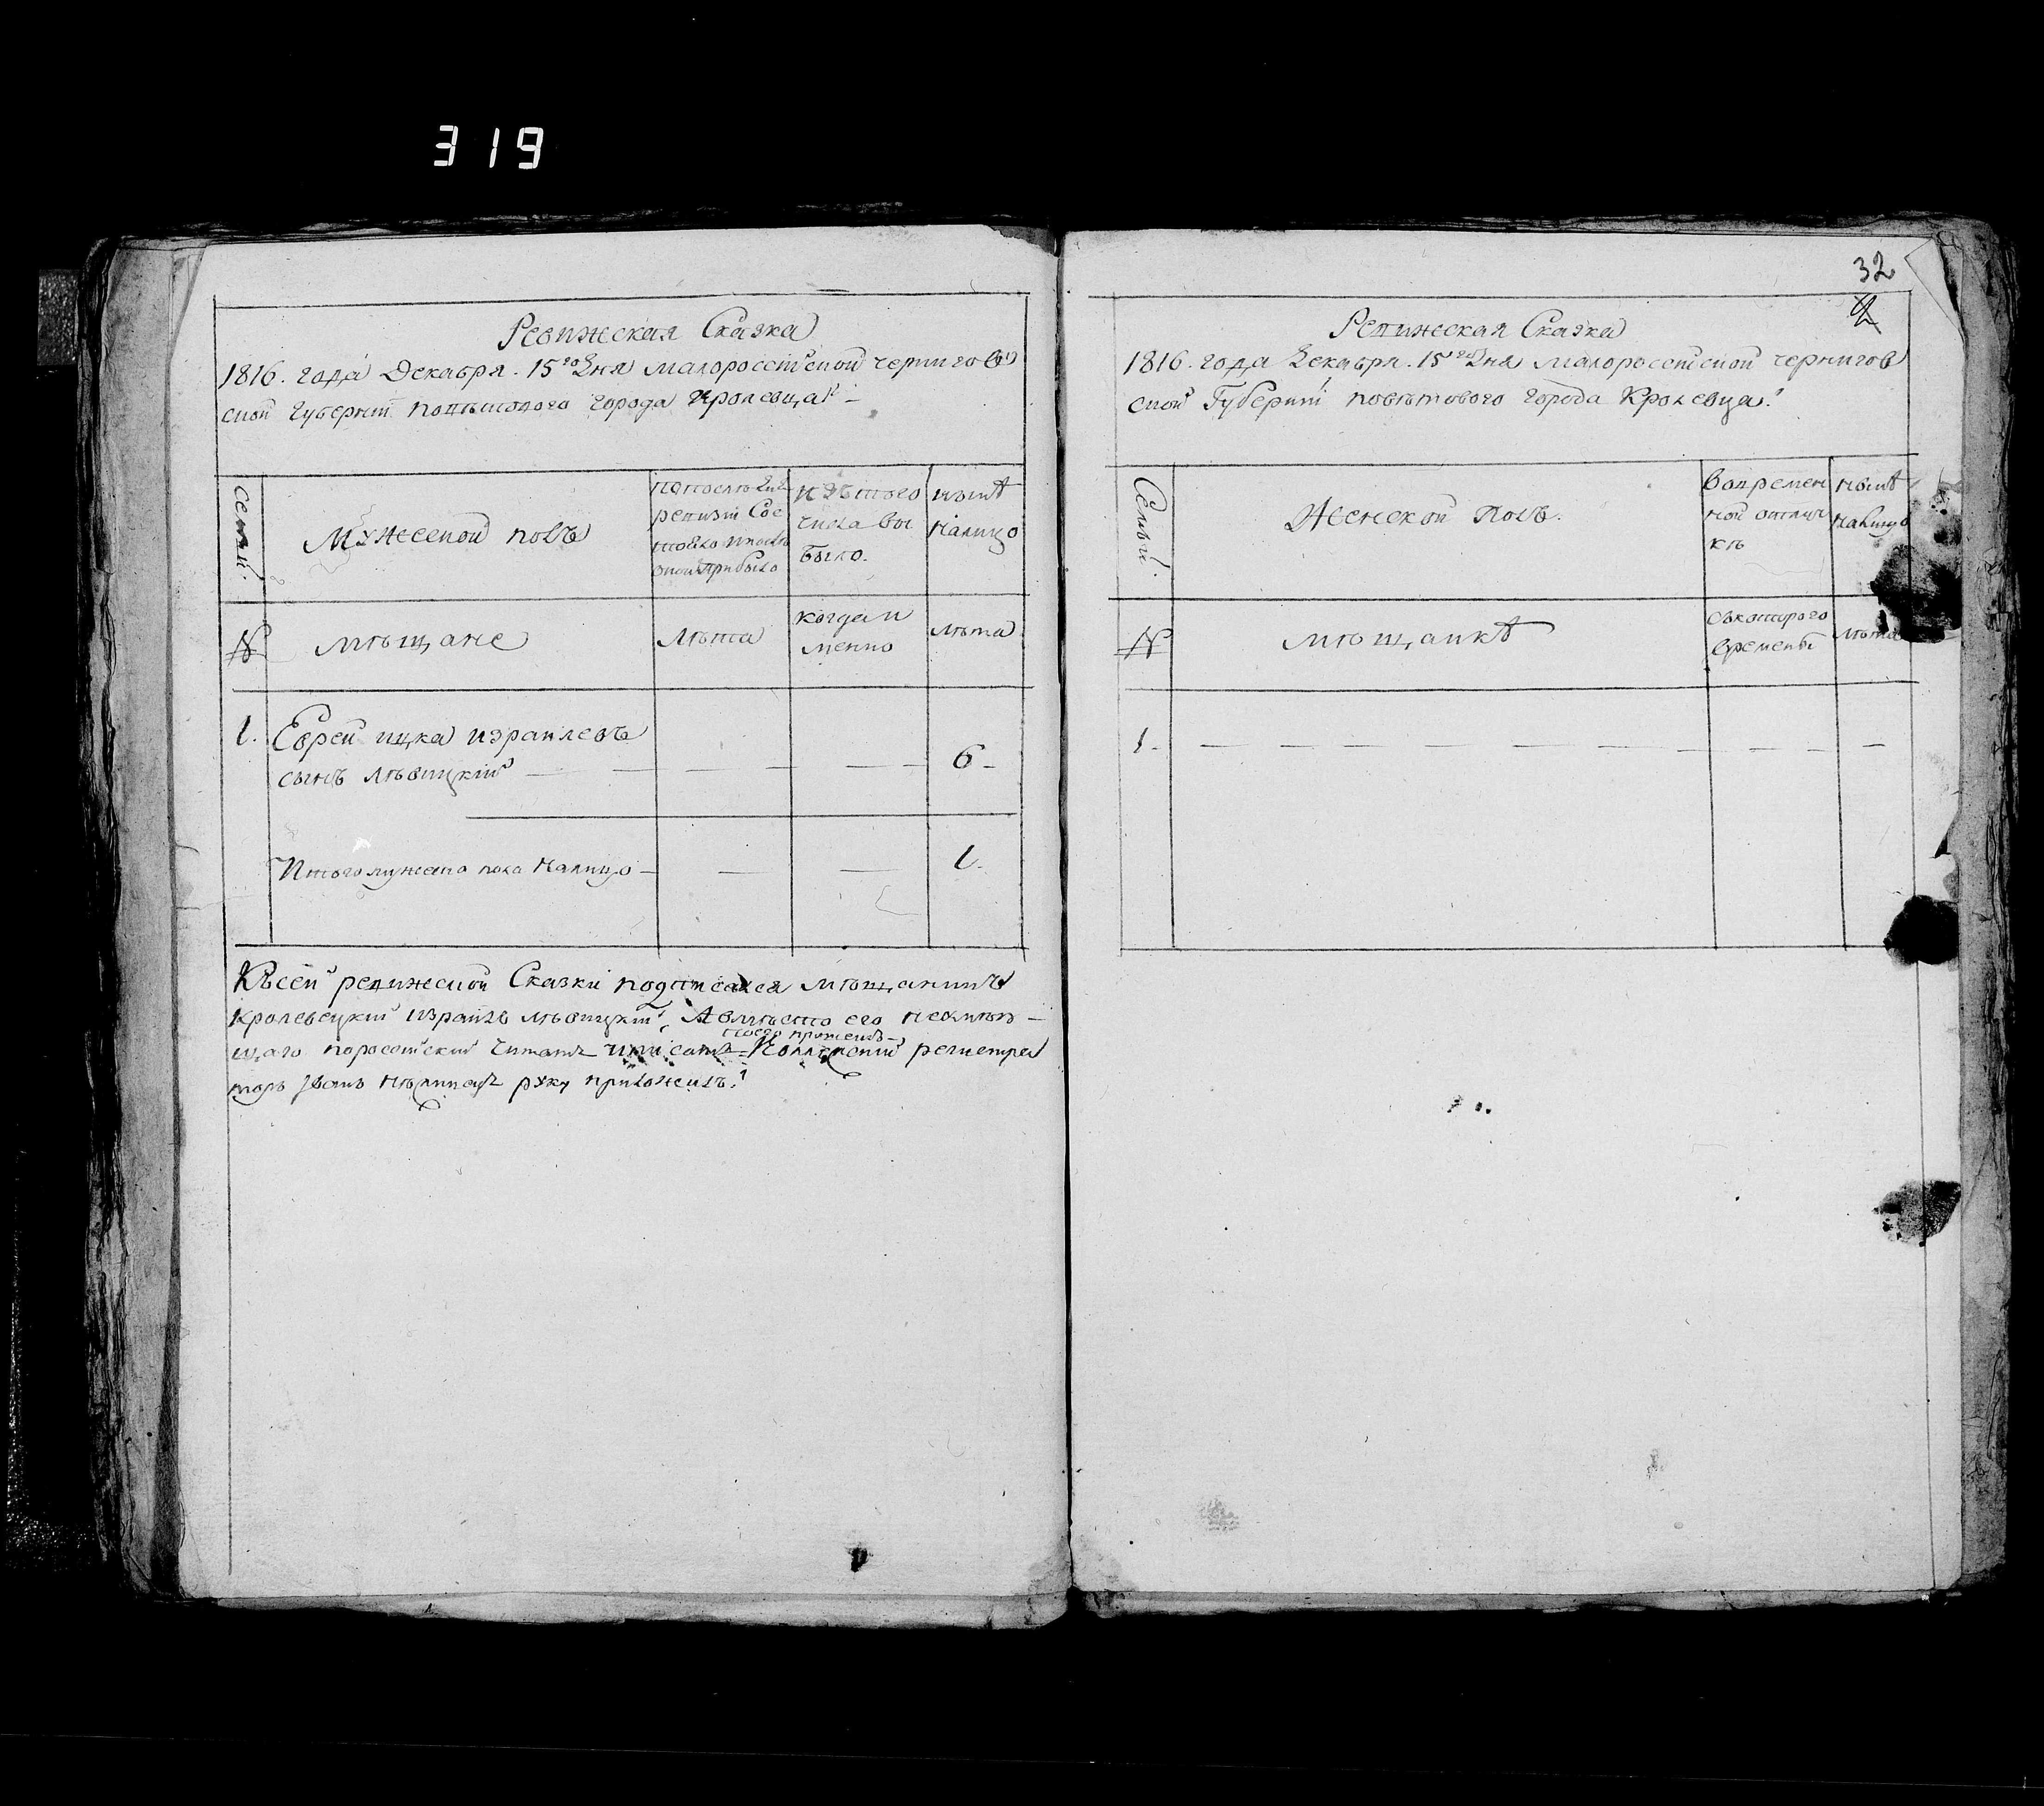 319
Ревижская Сказка
1816. года Декабря. 15го Дня малороссійской чернигов
ской Губерніи повѣтового города Кролевца
Семьи.
Мужеской полъ
по послѣдней
ревизіи Сос
тояло и послѣ
оной прибыло
изъ того
числа вы
было.
нынѣ
налицо
№
мѣщане
Лѣта
когда и
менно
лѣта
1.
Еврей ицка израилевъ
сынъ лѣвицкій
6
Итого мужеска пола налицо
1.
Къ сей ревижской Сказки подписался мѣщанинъ
кролевецкій израиль лѣвицкій, А вмѣсто его неумѣю
того прошенію
щаго пороссійски читать и писать Коллежскій регистра
торъ Иванъ руку приложилъ.
32
2
Ревижская Сказка
1816. года Декабря. 15го Дня малороссійской чернигов
ской Губерніи повѣтового города Кролевца.
Семьи.
Женской полъ.
Вовремен
ной отлуч
кѣ
нынѣ
налицо
№
мѣщанкѣ
съкоторого
времени
лѣта
1.